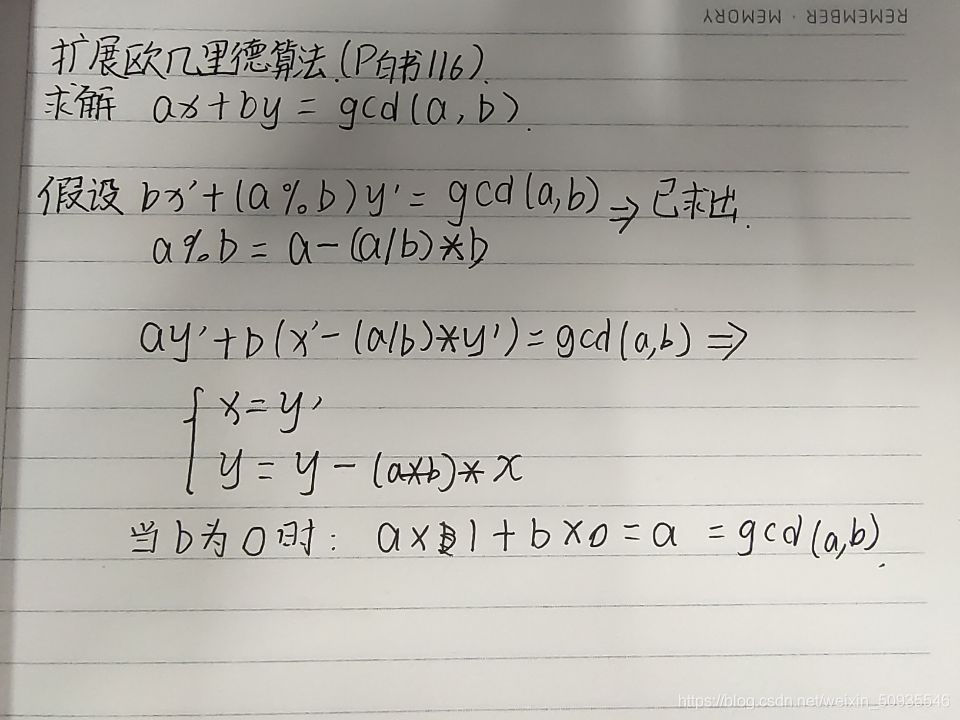 REMEMBER · MEMORY
扩展欧几里德算法.(P白书116).
求解 ax+by = gcd(a,b).
假设 bx'+(a%b)y' = gcd(a,b) => 已求出.
a%b = a-(a/b)*b
ay'+b(x'-(a/b)*y')=gcd(a,b) =>
{ x=y'
y = y-(a*b)*x
当b为0时: a×1+b×0=a =gcd(a,b).
https://blog.csdn.net/weixin_50935546